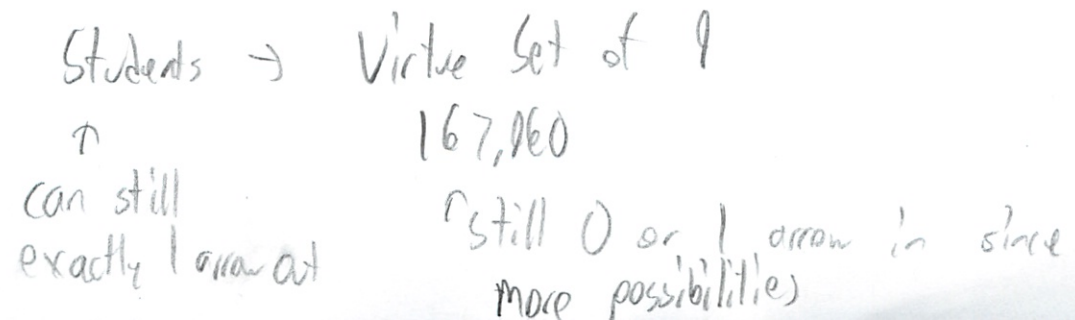 Students → Virtue Set of 9
↑ 167,960
can still
exactly 1 arrow out
↑ still 0 or 1 arrow in since
more possibilities